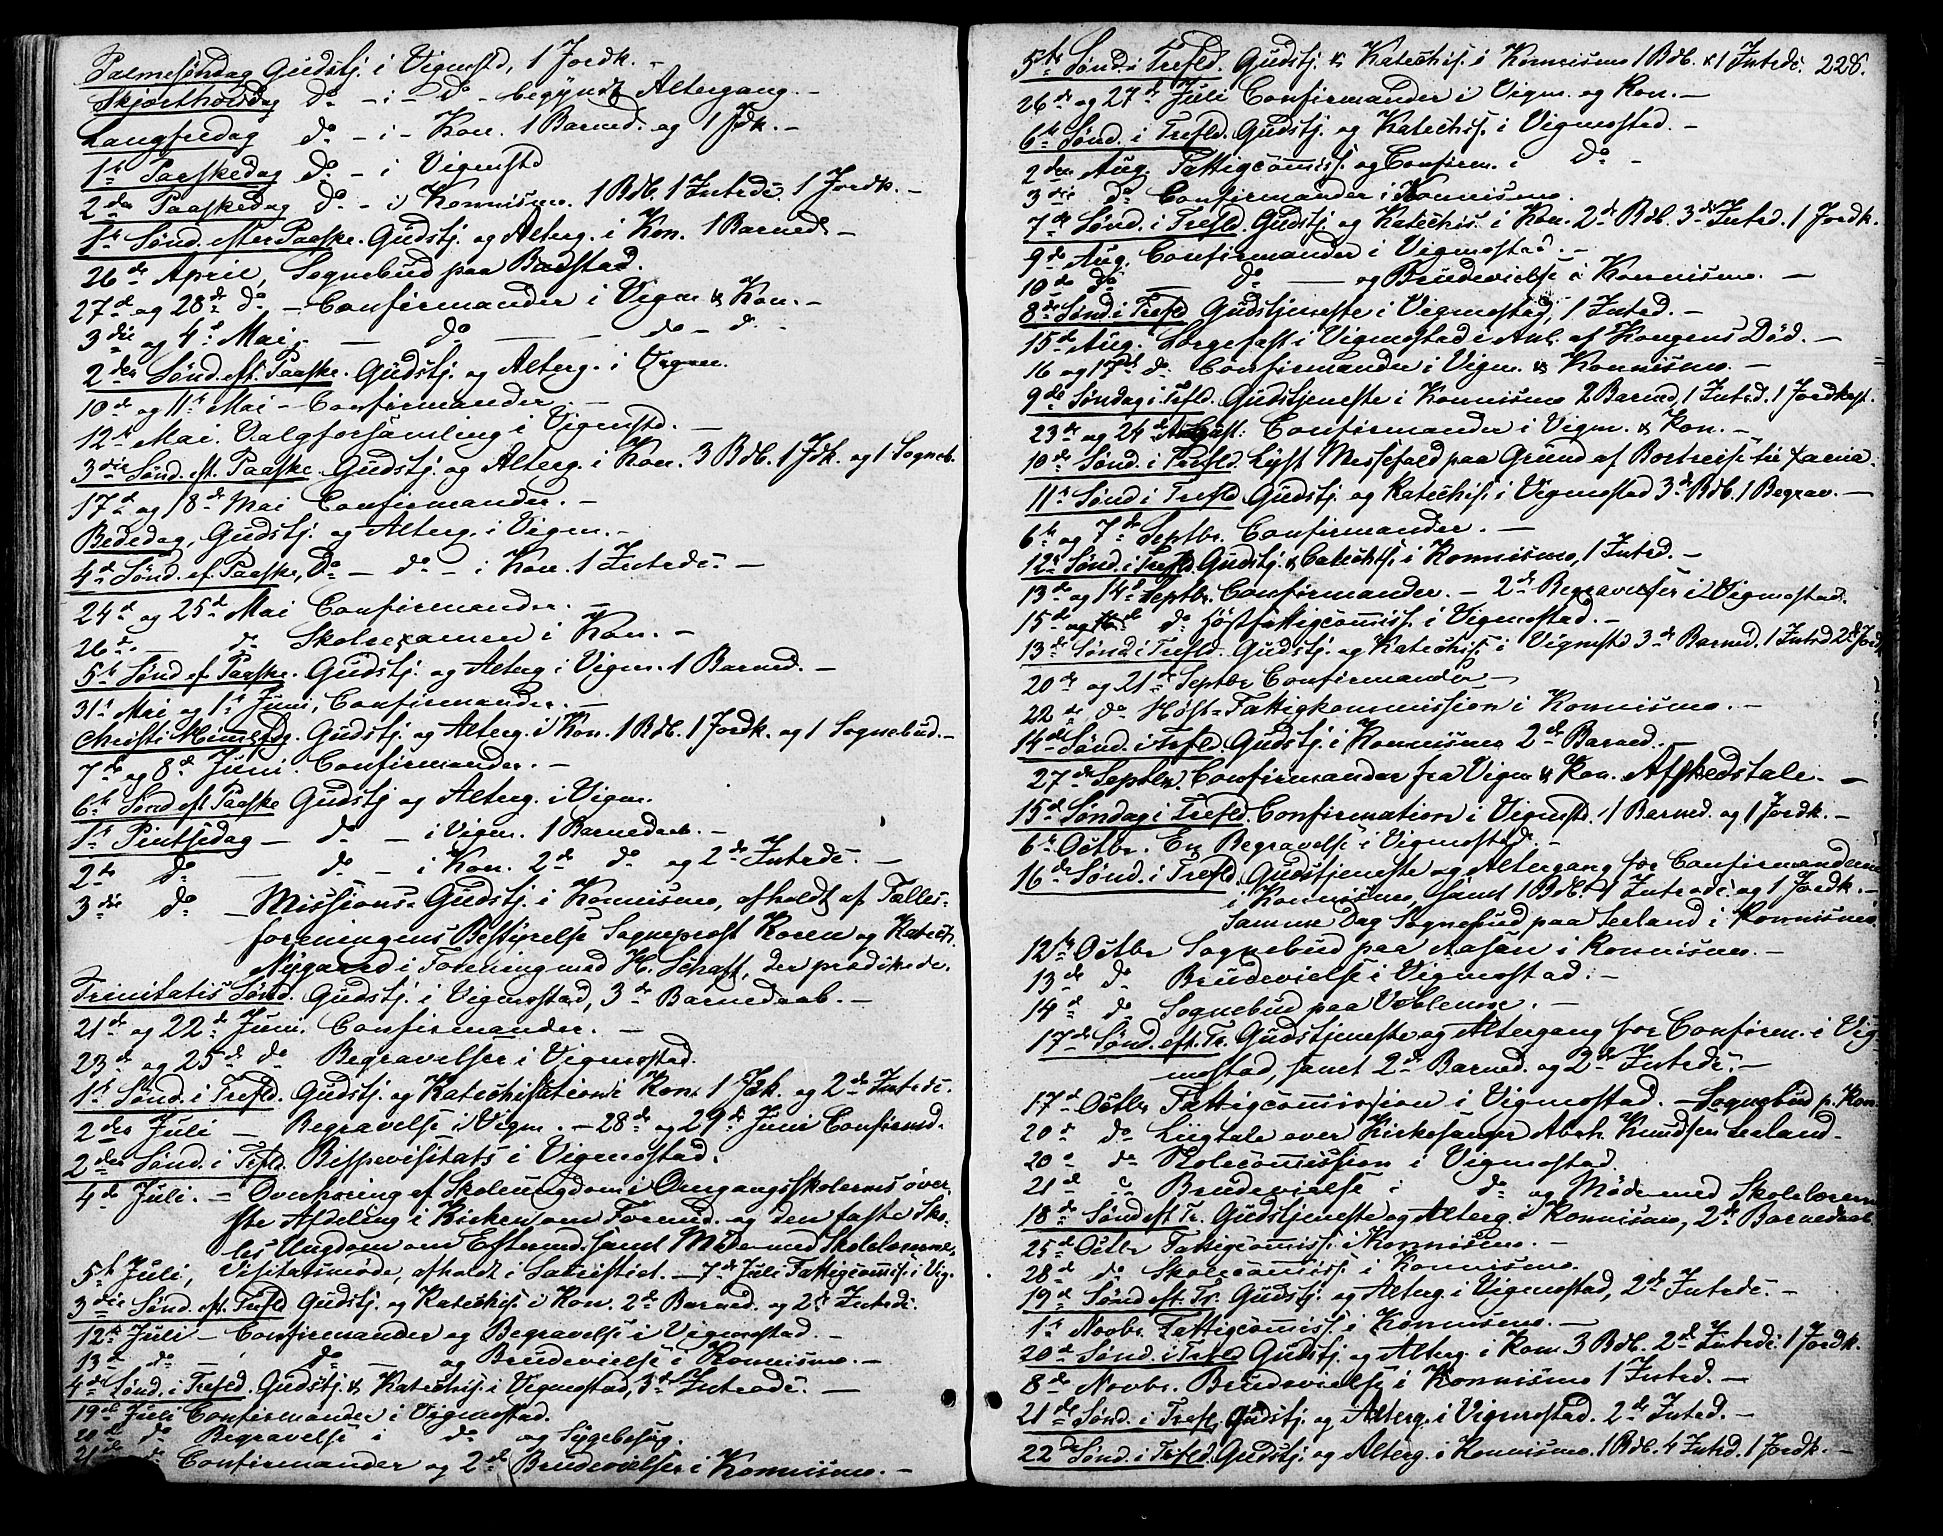 Palmesöndag Gudstj. i Vigmstd, 1 Jordk. –
Skjærthorsdag do – i – do – begyndt Altergang. –
Langfredag do – i – Kon. 1 Barned. og 1 Jdk. –
1st Paaskedag do – i Vigmstd
2den Paaskedag do – i Konnismo. 1 Bdb. 1 Introd: 1 Jordk. –
1st Sønd. efter Paaske. Gudstj. og Alterg. i Kon. 1 Barned. –
26de April, Sognebud paa
27d og 28de do – Confirmander i Vigm. & Kon. –
3die og 4d Mai, – do – do – d. –
2den Sønd. eft. Paaske. Gudstj. og Alterg. i Vigm.
10de og 11te Mai – Confirmander. –
12te Mai. Valgforsamling i Vigmstd. –
3die Sønd. ef. Paaske. Gudstj. og Alterg. i Kon. 3 Bdb. 1 Jdk. og 1 Sogneb.
17d og 18de Mai Confirmander. –
Bededag, Gudstj. og Alterg. i Vigm. –
4d Sønd. ef. Paaske, do – do – i Kon. 1 Introd: –
24d og 25d Mai Confirmander. –
26de – do Skoleexamen i Kon. –
5te Sønd ef. Paaske. Gudstj. og Alterg i Vigm. 1 Barned. –
31t Mai og 1st Juni, Confirmander. –
Christi Himmelfdg. Gudstj. og Alterg. i Kon. 1 Bdb. 1 Jordk. og 1 Sognebud. –
7de og 8d Juni. Confirmander. –
6te Sønd eft. Paaske Gudstj og Alterg. i Vigm.
1st Pintsedag – do – i Vigm. 1 Barnedaab. –
2de do – do – i Kon. 2de do og 2de Introd: –
3die do – Missions-Gudstj. i Konnismo, afholdt af Fælles-
foreningens Bestyrelse Sogneprest Koren og Katech.
Nygaard i Forening med H. Schaft, der prædikede.
Trinitatis Sønd. Gudstj. i Vigmostad, 3de Barnedaab. –
21de og 22de Juni. Confirmander. –
23d og 25d do Begravelser i Vigmostad.
1st Sønd. i Trefld. Gudstj. og Katechisation i Kon. 1 Jdk. og 2de Introd:
2den Juli – Begravelse i Vigm. – 28de og 29de Juni Confirmd.
2den Sønd. i Trefld. Bispevisitats i Vigmostad.
4de Juli. – Overhøring af Skoleungdom i Omgangsskolernes øver-
ste Afdeling i Kirken om Formid. og den faste Sko-
les Ungdom om Eftermd. samt Møde med Skolelærerne,
5te Juli, Visitatsmøde, afholdt i Sakristiet. – 7de Juli Fattigcomiss. i Vig.
3die Sønd. ef. Trefld. Gudstj. og Katechis. i Kon. 2d Barned. og 2d Introd:
12te Juli – Confirmander og Begravelse i Vigmostad. –
13d do – do – og Brudevielse i Konnismo. –
4de Sønd. i Trefld. Gudstj. & Katechis. i Vigmostad, 3d Introd: –
19de Juli Confirmander i Vigmostad.
20de do Begravelse i do og Sygebesøg.
21de do Confirmander og 2de Brudevielser i Konnismo. –
228.
5te Sønd. i Trefld. Gudstj. & Katechis. i Konnismo 1 Bdb. & 1 Introd:
26de og 27de Juli Confirmander i Vigm. og Kon. –
6te Sønd. i Trefld. Gudstj. og Katechis. i Vigmostad. –
2den Aug. Fattigcomiss. og Confirm. i do –
3die do Confirmander i Konnismo.
7de Sønd. i Trefld. Gudstj. og Katechis. i Kon. 2de Bdb. 3de Introd. 1 Jordk.
9de Aug. Confirmander i Vigmostad. –
10de do – do – og Brudevielse i Konnismo. –
8de Sønd. i Trefld Gudstjeneste i Vigmostad, 1 Introd. –
15de Aug. Sørgefest i Vigmostad i Anl. af Kongens Død. –
16 og 17de do Confirmander i Vigm. & Konnismo. –
9de Søndag i Trfld. Gudstjeneste i Konnismo 2 Barned, 1 Introd. 1 Jordkst.
23de og 24d August: Confirmander i Vigm. & Kon. –
10de Sønd. i Trefld. Lyst Messefald paa Grund af Bortreise til
11te Sønd i Trefld Gudstj. og Katechis. i Vigmostad 3de Bdb. 1 Begrav. –
6te og 7de Septbr. Confirmander. –
12te Sønd. i Trefld. Gudstj. & Catechis. i Konnismo, 1 Introd. –
13de og 14d Septbr. Confirmander. – 2de Begravelser i Vigmostad.
15d do Høstfattigcomiss. i Vigmostad. –
13de Sønd i Trefld. Gudstj. og Katechis. i Vigmstd 3de Barned. 1 Introd 2de Jord
20de og 21de Septbr Confirmander –
22de do Høst-Fattigkommission i Konnismo. –
14de Sønd. i Trefld. Gudstj. i Konnismo 2de Barned. –
27de Septbr. Confirmander fra Vigm & Kon. Afskedstale. –
15d Søndag i Trefld. Confirmation i Vigmstd. 1 Barned. og 1 Jordk. –
6te Octbr. En Begravelse i Vigmostad. –
16de Sønd. i Trefld. Gudstjeneste og Altergang for Confirmanderne
i Konnismo, samt 1 Bdb. 1 Introd: og 1 Jordk. –
Samme Dag Sognebud paa Seeland i Konnismo.
12te Octbr Sognebud paa Aasan i Konnismo. –
13de do Brudevielse i Vigmostad. –
14d do Sognebud paa –
17de Sønd. eft. Tr. Gudstjeneste og Altergang for Confirm. i Vig-
mostad, samt 2de Barned. og 2de Introd: –
17d Octbr Fattigcomission i Vigmostad. – Sognebud p. Kon.
20d do Liigtale over Kirkesanger Abrh. Knudsen Seeland. –
20d do Skolecomission i Vigmostad.
21d do Brudevielse i do og Møde med Skolelærerne
18de Sønd eft Tr. Gudstjeneste og Alterg. i Konnismo, 2de Barnedaab
25d Octbr Fattigcomiss. i Konnismo. –
28d do Skolecomiss. i Konnismo.
19d Sønd eft. Tr. Gudstj. og Alterg i Vigmostad, 2de Introd: –
1st Novbr. Fattigcomiss. i Konnismo. –
20de Sønd. i Trefld Gudstj. og Alterg. i Kon. 3 Bdb. 2de Introd: 1 Jordk.
8de Novbr. Brudevielse i Konnismo 1 Introd. –
21de Sønd. i Trefl. Gudstj. og Alterg. i Vigmostad. 2de Introd. –
22de Sønd. i Trfld. Gudstj. og Alterg. i Konnismo. 1 Bdb. 4 Introd. 1 Jordk. –